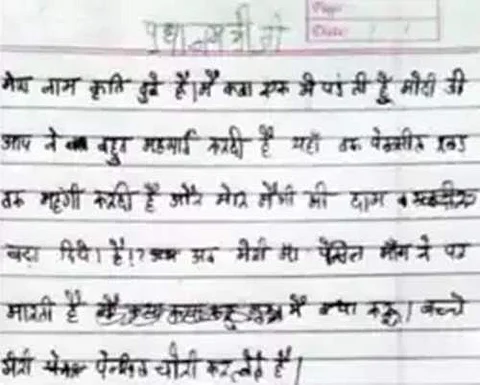 प्रधानमंत्री जी
Page:
Date: / /
मेरा नाम कृति दुबे है। मै कक्षा एक मे पढ़ ती हूँ मोदी जी
आप ने बहुत महगाई करदी है यहाँ तक पेन्सील रबड़
तक महंगी करदी है और मेरि मैगी की दाम व
बढ़ा दिये। है।? अब मेरी मा पेंसिल माँग ने पर
मारती है मैं क्या करू। बच्चे
मेरी पेन्सिल चोरी कर लेते है।